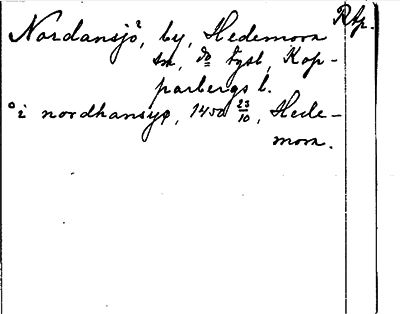 Nordansjö, by, Hedemora Rtp.
sn, do tgsl, Kop-
parbergs l.
"i nordhansyø, 1450 23/10, Hede-
mora.